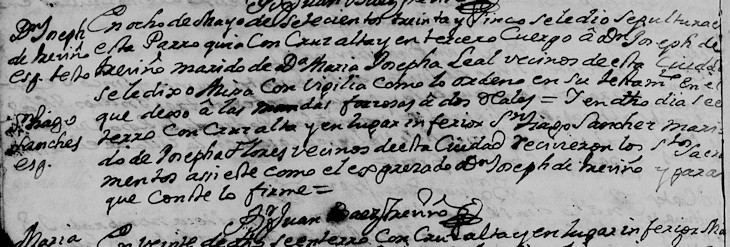 Br Juan Baez Treviño
Dn Joseph
de treviño
esp. testo
En ocho de Mayo de Setecientos treinta y Cinco se le dio sepultura en
esta Parroquia Con Cruz alta y en tercero Cuerpo â Dn Joseph de
treviño marido de Da Maria Josepha Leal vecinos de esta Ciudad
se le dixo Missa Con Vigilia como lo ordeno en su testamto En el
que dexo â las mandas forzosas â dos Reales = Y en dho dia se en
terro Con Cruz alta y en lugar inferior Santiago Sanchez mari
do de Josepha Flores vecinos de esta Ciudad recivieron los Stos Sacra
mentos assi este como el expresado Dn Joseph de treviño y para
que Conste lo firme =
Santiago
Sanches
esp.
Br Juan Baez Treviño
Maria
En veinte de dho se enterro con Cruz alta y en lugar inferior